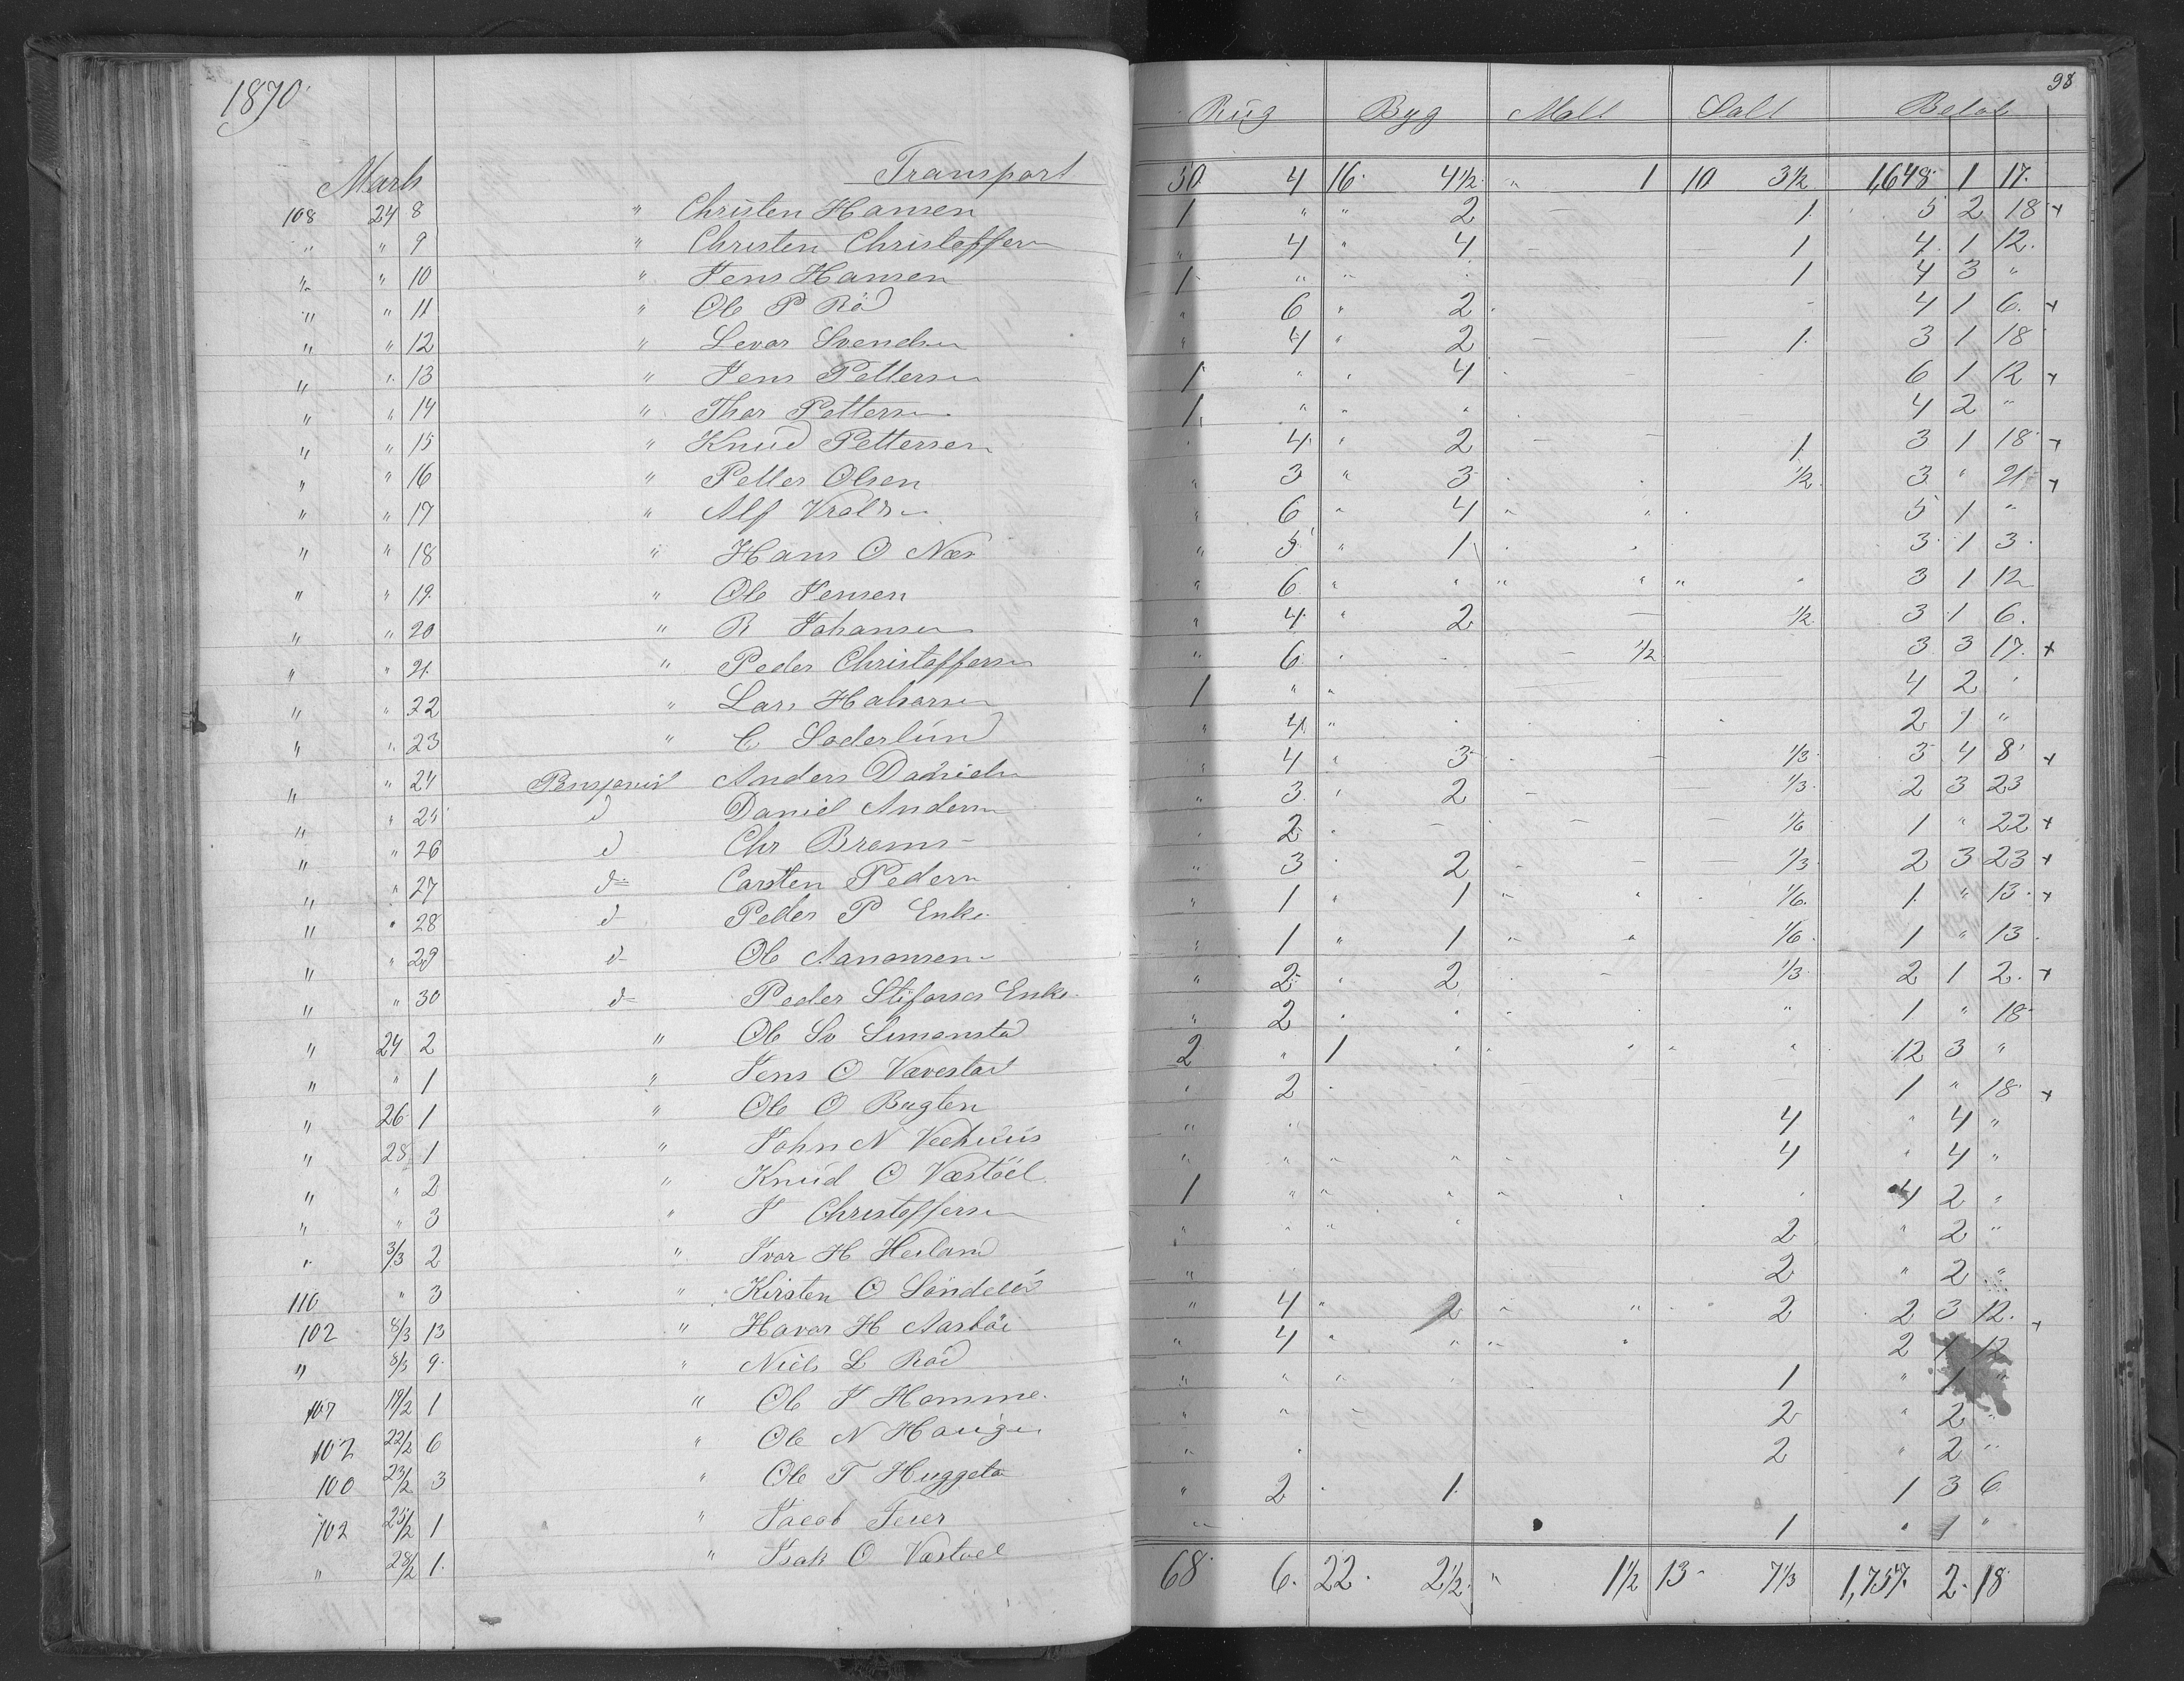 1870
98
Rug Byg Malt Salt Beløb
Marts Transport 50 4 16 4 1/2 " 1 10 3 1/2 1,648 1 17
108 24 8 " Christen Hansen 1 " " 2 – 1 5 2 18 +
" " 9 " Christen Christoffersen " 4 " 4 – 1 4 1 12
" " 10 " Jens Hansen 1 " " 1 4 3 "
" " 11 " Ole P Rö " 6 " 2 4 1 6 +
" " 12 " Levor Svendsen " 4 " 2 – 1 3 1 18
" " 13 " Jens Pettersen 1 " " 4 6 1 12 +
" " 14 " Thor Pettersen 1 " " " 4 2 "
" " 15 " Knud Pettersen " 4 " 2 – – 1 3 1 18 +
" " 16 " Petter Olsen " 3 " 3 1/2 3 " 21 +
" " 17 " Alf " 6 " 4 " " 5 1 "
" " 18 " Hans O Næs " 5 " 1 3 1 3
" " 19 " Ole Jensen " 6 " " " " " " 3 1 12
" " 20 " R Johansen " 4 " 2 – 1/2 3 1 6
" " 21 " Peder Christoffersen " 6 " – 1/2 3 3 17 +
" " 22 " Lars Halvorsen 1 " " 4 2 "
" " 23 " C Soderlund " 4 " 2 1 "
" " 24 Pensjonist Anders Danielsen " 4 " 3 – 1/3 3 4 8 +
" " 25 d Daniel Andersen " 3 " 2 – – 1/3 2 3 23
" " 26 d Chr Broms – " 2 " – – – 1/6 1 " 22 +
" " 27 d Carsten Pedersen " 3 " 2 – – 1/3 2 3 23 +
" " 28 d Peder P Enke " 1 " 1 " " 1/6 1 " 13 +
" " 29 d Ole Aanonsen " 1 " 1 " " 1/6 1 " 13
" " 30 d Peder Enke " 2 " 2 – 1/3 2 1 2 +
" 24 2 " Ole Sv Simonstad " 2 " " " " 1 " 18
" " 1 " Jens O Vævestad 2 " 1 " " " " " 12 3 "
" 26 1 " Ole O Bugten " 2 1 " 18 +
" 28 1 " John N Veehuus " " 4 " 4 "
" " 2 " Knud O Væstöl " " " " " 4 " 4 "
" " 3 " J Christoffersen 1 " " " " " 4 2 "
" 3/3 2 " Ivar H Heiland " " " " 2 " 2 "
110 " 3 " Kirsten O Söndeled " 2 " 2 "
102 8/3 13 " Havor H " 4 " 2 " " 2 2 3 12 +
" 8/3 9 " Niels L Röd " 4 " " " " 2 1 12
107 19/2 1 " Ole J Homme " " " 1 " 1 "
102 22/2 6 " Ole N Haugen " " – 2 " 2 "
100 23/2 3 " Ole T " " 2 " 2 "
102 25/2 1 " Jacob Feier " 2 1 1 3 6
" 28/2 1 " Isak O Væstöel " 1 " 1 "
68 6 22 2 1/2 " 1 1/2 13 7 1/3 1,757 2 18